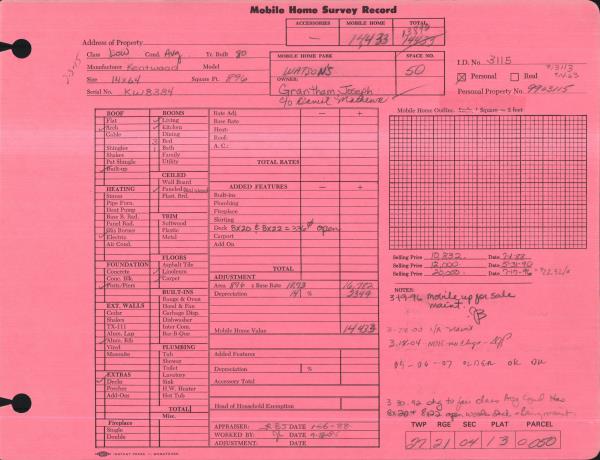 Mobile Home Survey Record
ACCESSORIES MOBILE HOME TOTAL
— 14433
Address of Property
Class Low Cond. Avg. Yr. Built 80
Manufacturer Kentwood Model
Size 14x64 Square Ft. 896
Serial No. KW8384
MOBILE HOME PARK SPACE NO.
WATSONS 50
OWNER:
Grantham, Joseph
I.D. No. 3115
Personal Real
Personal Property No. 9903115
ROOF
Flat
Arch
Gable
Shingles
Shakes
Fat Shingle
Built-up
HEATING
Stoves
Pipe Forn.
Heat Pump
Base B. Rad.
Panel Rad.
Oil Burner
Electric
Air Cond.
FOUNDATION
Concrete
Conc. Blk.
Posts/Piers
EXT. WALLS
Cedar
Shakes
TX-111
Alum. Lap
Alum. Rib
Vinyl
Masonite
EXTRAS
Decks
Porches
Add-Ons
Fireplace
Single
Double
ROOMS
Living
Kitchen
Dining
Bed
Bath
Family
Utility
CEILED
Wall Board
Paneled
Plast. Brd.
TRIM
Softwood
Plastic
Metal
FLOORS
Asphalt Tile
Linoleum
Carpet
BUILT-INS
Range & Oven
Hood & Fan
Garbage Disp.
Dishwasher
Inter Com.
Bar-B-Que
PLUMBING
Tub
Shower
Toilet
Lavatory
Sink
H.W. Heater
Hot Tub
TOTAL
Misc.
Rate Adj. — +
Base Rate
Heat:
Roof:
A. C.:
TOTAL RATES
ADDED FEATURES — +
Built-ins
Plumbing
Fireplace
Skirting
Deck 8x20 & 8x22 = 336 open
Carport
Add On
TOTAL
ADJUSTMENT
Area 896 x Base Rate 1873 16,782
Depreciation 14 % 2349
Mobile Home Value 14433
Added Features
Depreciation %
Accessory Total
Head of Household Exemption
APPRAISER: DATE 1-26-88
WORKED BY: DATE
ADJUSTMENT: DATE
Mobile Home Outline. Square = 2 feet
Selling Price 10,832 Date
Selling Price 12,000 Date 5-31-90
Selling Price 20,000 Date 7-17-96
NOTES:
3-19-96 mobile up for sale
maint.
3-18-04
05-06-07 OLDER OK
3-30-92 chg to fair class Avg Cond Has
8x20 & 8x22 open wood deck
TWP RGE SEC PLAT PARCEL
27 21 04 13 0050